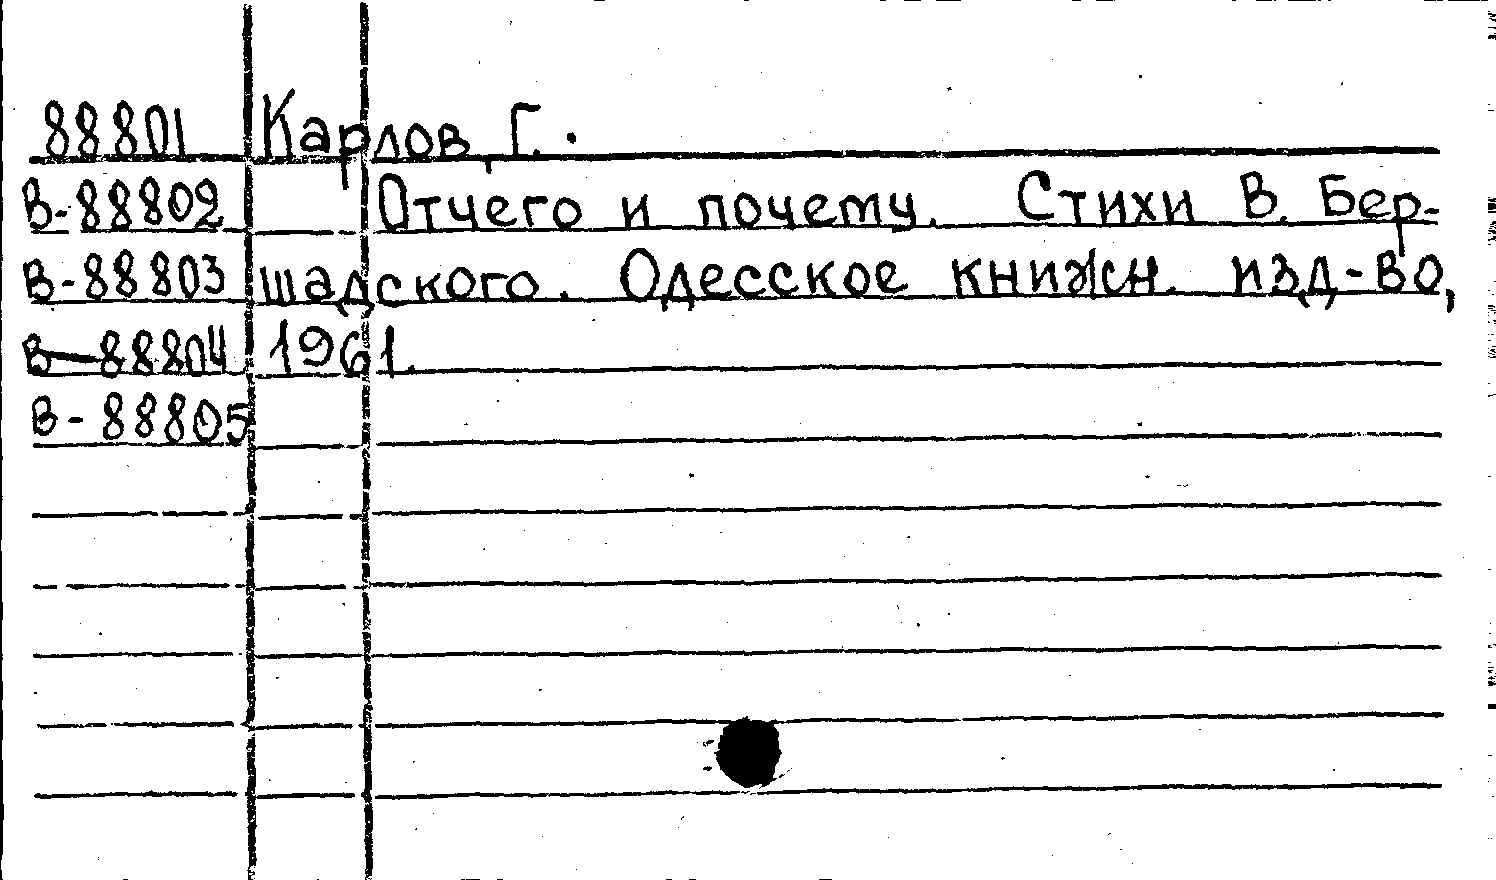 88801 Карлов, Г.
В-88802 Отчего и почему. Стихи В. Бер-
В-88803 шадского. Одесское книжн. изд-во,
В-88804 1961.
В-88805